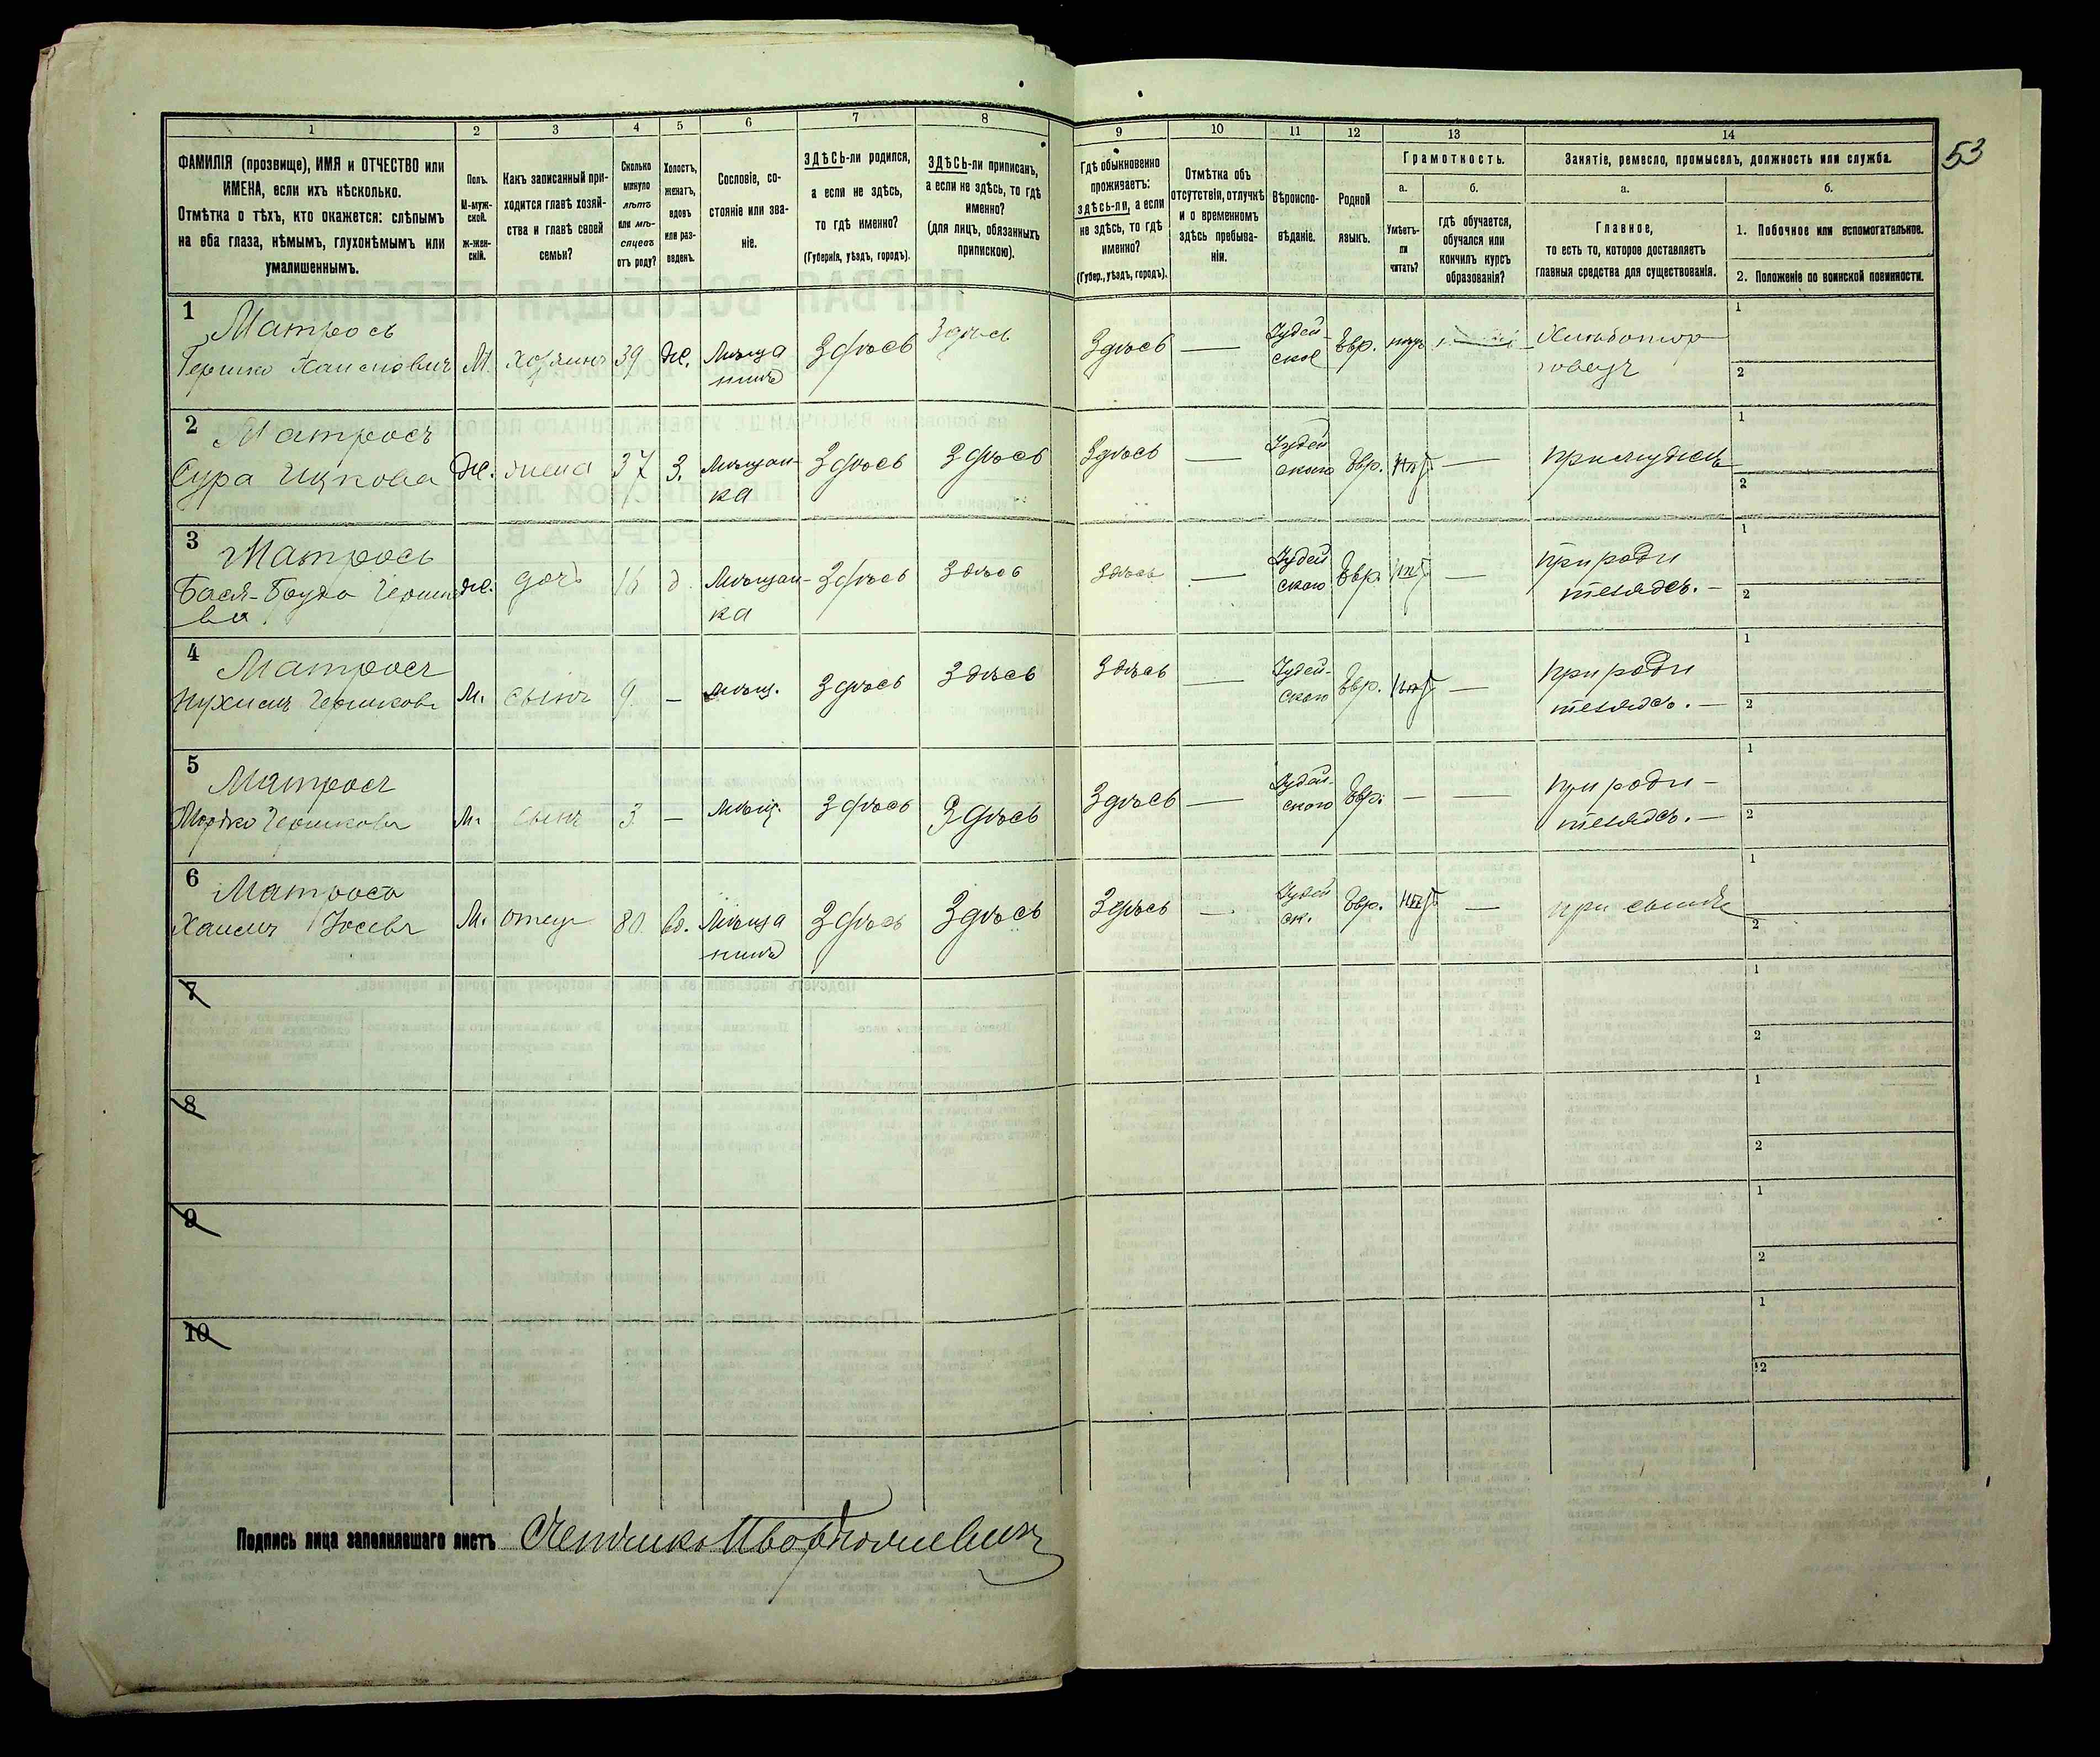 53
1 2 3 4 5 6 7 8 9 10 11 12 13 14
ФАМИЛІЯ (прозвище), ИМЯ и ОТЧЕСТВО или
ИМЕНА, если ихъ нѣсколько.
Отмѣтка о тѣхъ, кто окажется: слѣпымъ
на оба глаза, нѣмымъ, глухонѣмымъ или
умалишеннымъ.
Полъ.
М-муж-
ской.
ж-жен-
скій.
Какъ записанный при-
ходится главѣ хозяй-
ства и главѣ своей
семьи?
Сколько
минуло
лѣтъ
или мѣ-
сяцевъ
отъ роду?
Холостъ,
женатъ,
вдовъ
или раз-
веденъ.
Сословіе, со-
стояніе или зва-
ніе.
ЗДѢСЬ-ли родился,
а если не здѣсь,
то гдѣ именно?
(Губернія, уѣздъ, городъ).
ЗДѢСЬ-ли приписанъ,
а если не здѣсь, то гдѣ
именно?
(для лицъ, обязанныхъ
припискою).
Гдѣ обыкновенно
проживаетъ:
здѣсь-ли, а если
не здѣсь, то гдѣ
именно?
(Губер., уѣздъ, городъ).
Отмѣтка объ
отсутствіи, отлучкѣ
и о временномъ
здѣсь пребыва-
ніи.
Вѣроиспо-
вѣданіе.
Родной
языкъ.
Грамотность.
а.
Умѣетъ-
ли
читать?
б.
гдѣ обучается,
обучался или
кончилъ курсъ
образованія?
Занятіе, ремесло, промыселъ, должность или служба.
а.
Главное,
то есть то, которое доставляетъ
главныя средства для существованія.
б.
1. Побочное или вспомогательное.
2. Положеніе по воинской повинности.
1 Матросъ
Гершко Хаимовичъ М. хозяинъ 39 же. Мѣща Здѣсь Здѣсь Здѣсь — Іудей Евр.
нинъ ское
1
2
2 Матросъ
Сура Ицкова Же. жена 37 З. Мѣщан- Здѣсь Здѣсь Здѣсь — Іудей Евр. нѣт — при мужѣ
ка ского
1
2
3 Матросъ
Бася- Гершко же. дочь 16 д. Мѣщан- Здѣсь Здѣсь Здѣсь — Іудей Евр. нѣт — при роди
ва ка ского теляхъ. —
1
2
4 Матросъ
Нухимъ Гершковъ М. сынъ 9. — мѣщ. Здѣсь Здѣсь Здѣсь — Іудей- Евр. нѣт — при роди
ского теляхъ. —
1
2
5 Матросъ
Мордко Гершковъ М. сынъ 3 — мѣщ. Здѣсь Здѣсь Здѣсь — Іудей- Евр. — — при роди-
ского теляхъ. —
1
2
6 Матросъ
Хаимъ Іосевъ М. отецъ 80. вд. Мѣща Здѣсь Здѣсь Здѣсь — Іудей Евр. нѣт — при сынѣ
нинъ ск.
1
2
7
1
2
8
1
2
9
1
2
10
1
2
Подпись лица заполнявшаго листъ